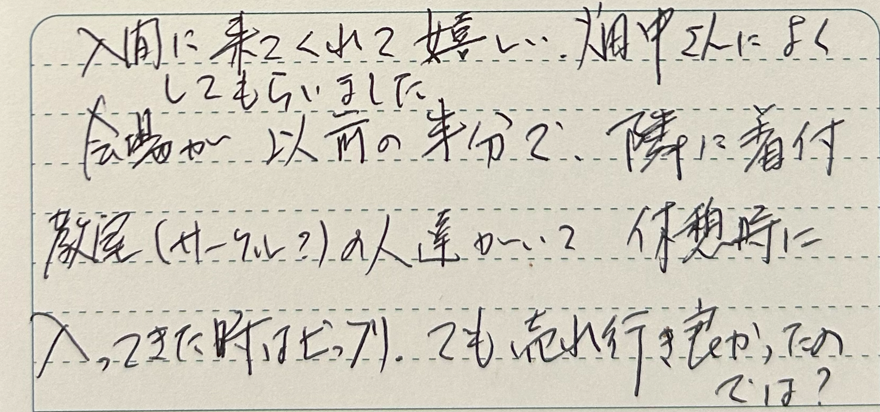 入間に来てくれて嬉しい。畑中さんによく
してもらいました
会場が以前の半分で、隣に着付
教室(サークル?)の人達がいて 休憩時に
入ってきた時はビックリ。でも売れ行き良かったの
では?